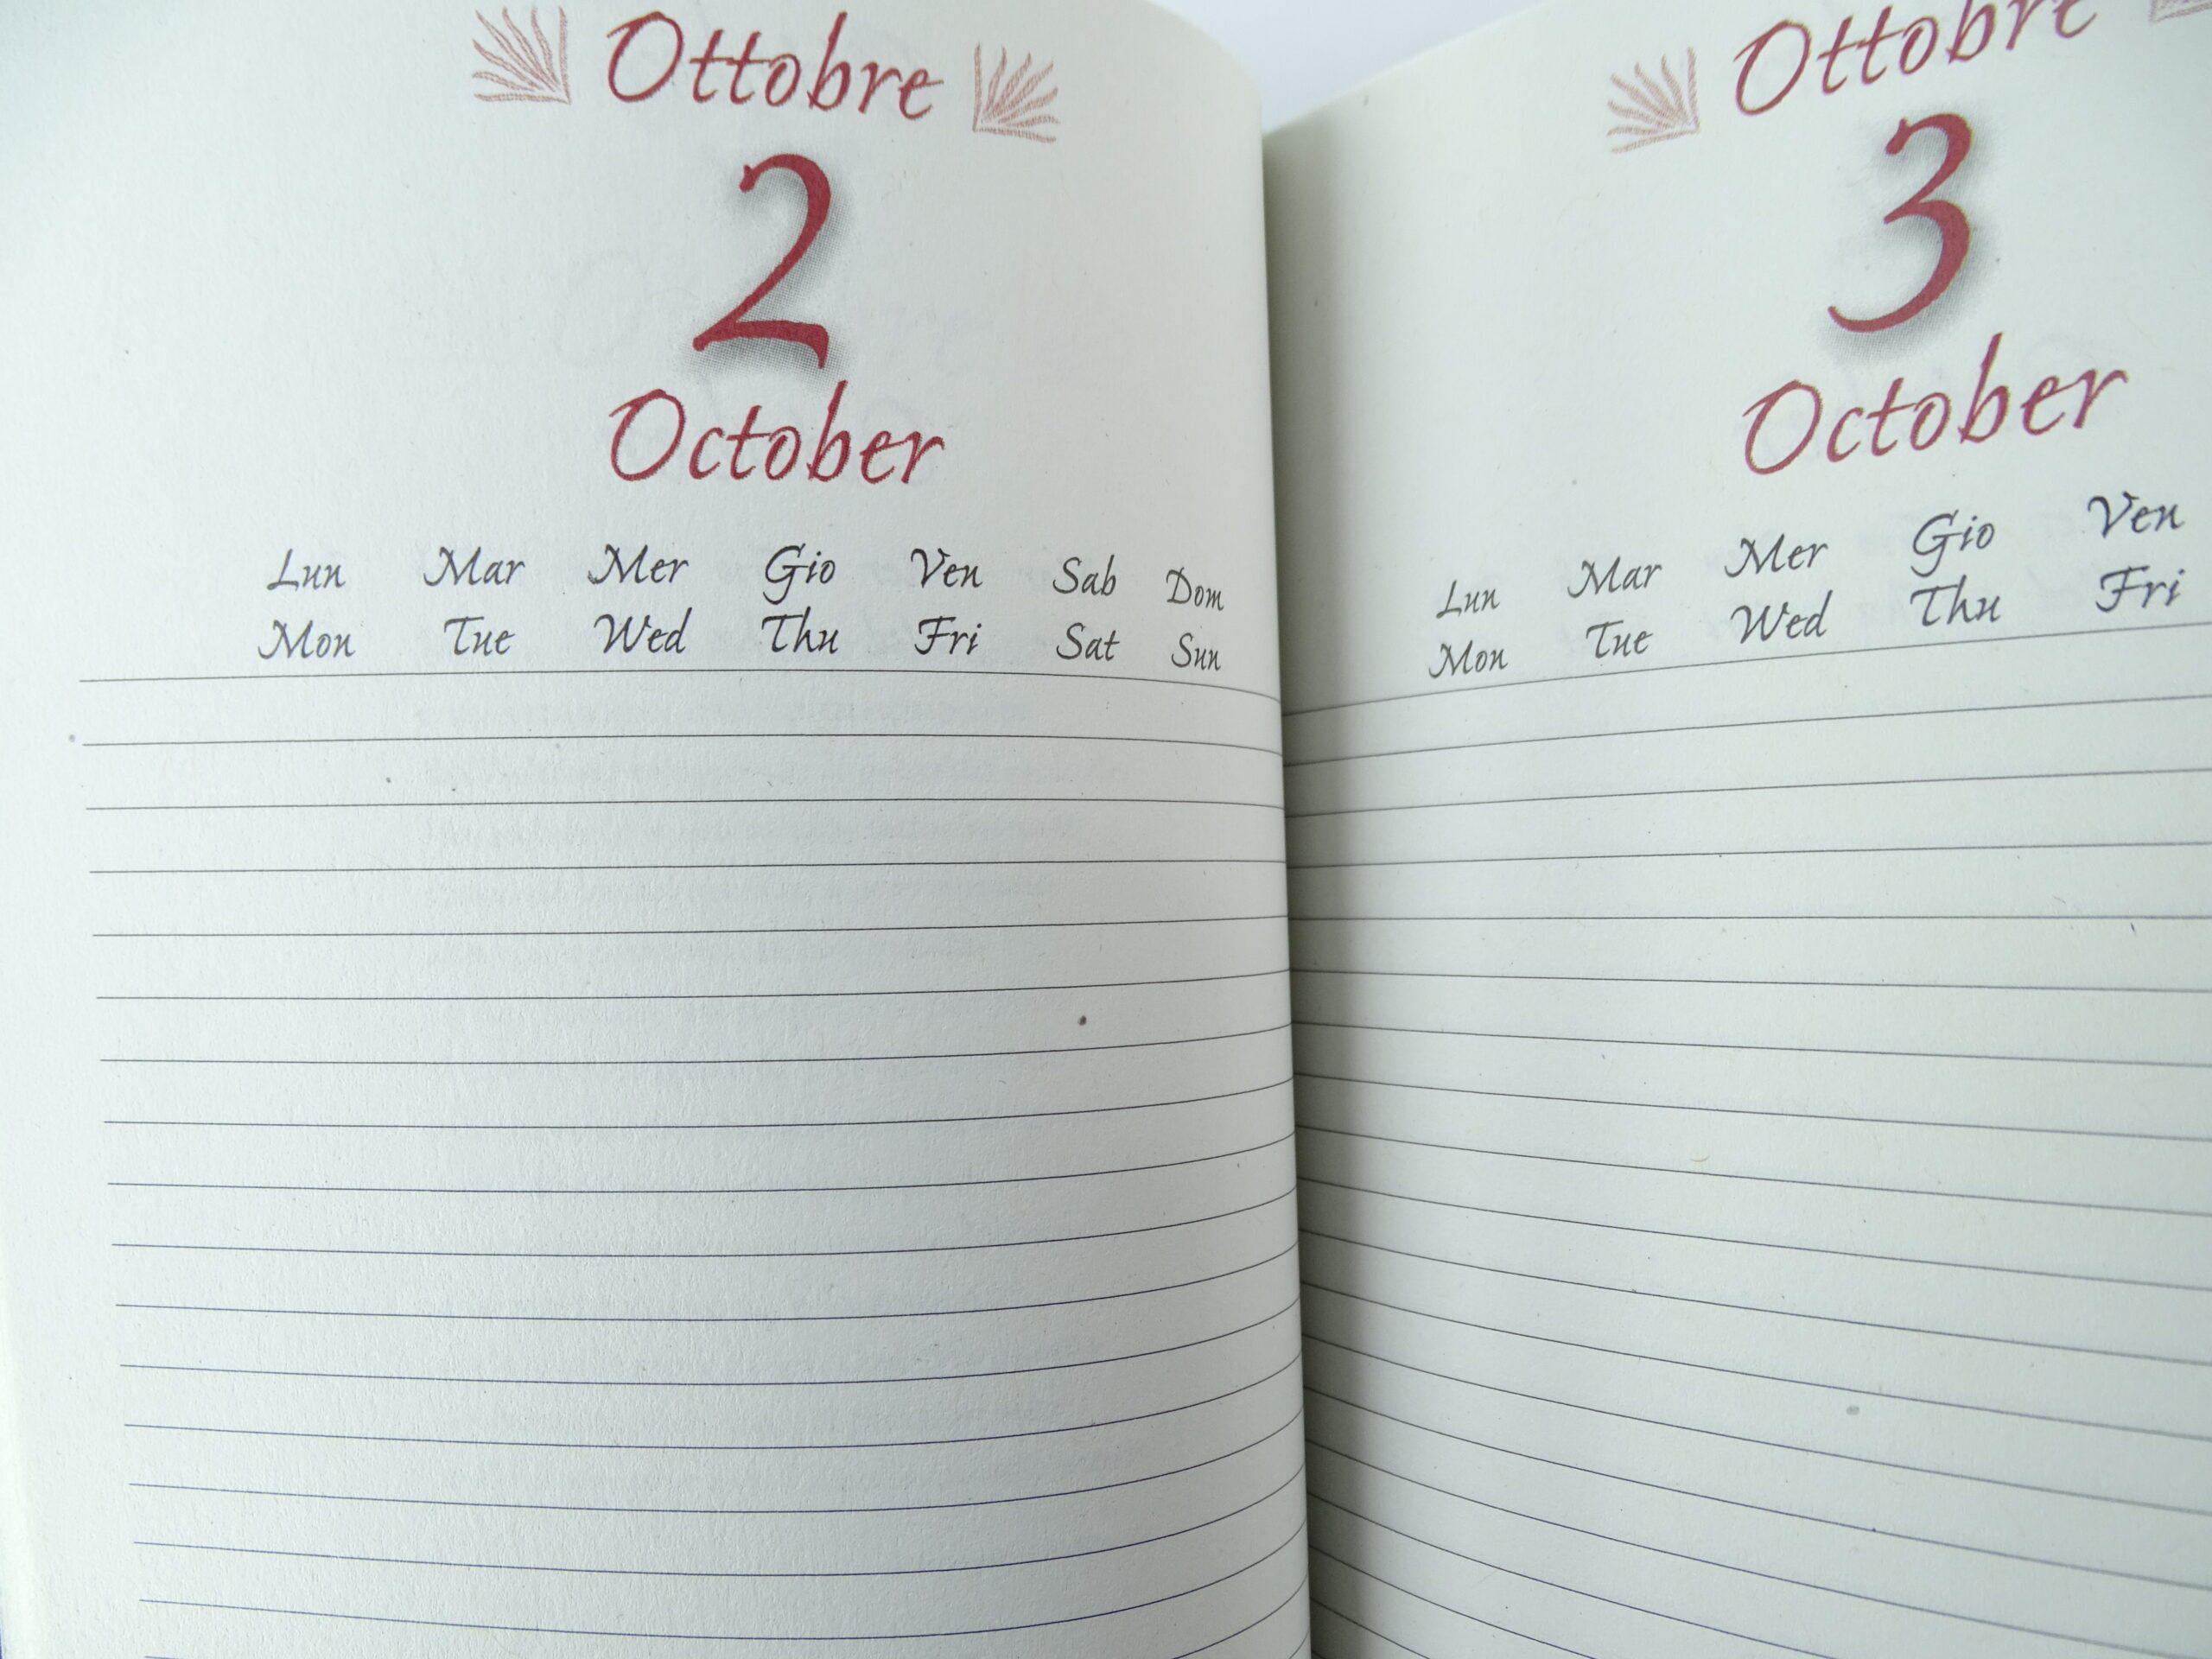 Ottobre
2
October
Lun Mar Mer Gio Ven Sab Dom
Mon Tue Wed Thu Fri Sat Sun
Ottobre
3
October
Lun Mar Mer Gio Ven
Mon Tue Wed Thu Fri